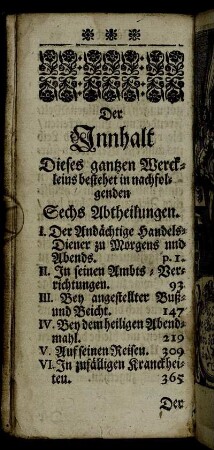 Der
Innhalt
Dieses gantzen Werck-
leins bestehet in nachfol-
genden
Sechs Abtheilungen.
I. Der Andächtige Handels-
Diener zu Morgens und
Abends. p. 1.
II. In seinen Ambts-Ver-
richtungen. 93
III. Bey angestellter Buß-
und Beicht. 147
IV. Bey dem heiligen Abend-
mahl. 219
V. Auf seinen Reisen. 309
VI. In zufälligen Kranckhei-
ten. 365
Der